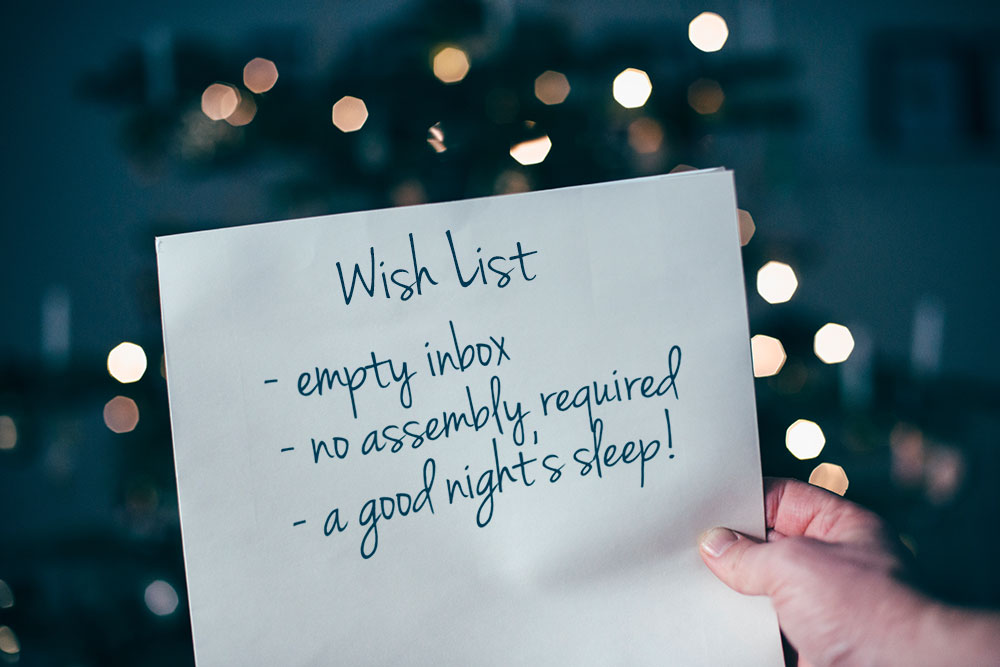 Wish List
- empty inbox
- no assembly required
- a good night's sleep!